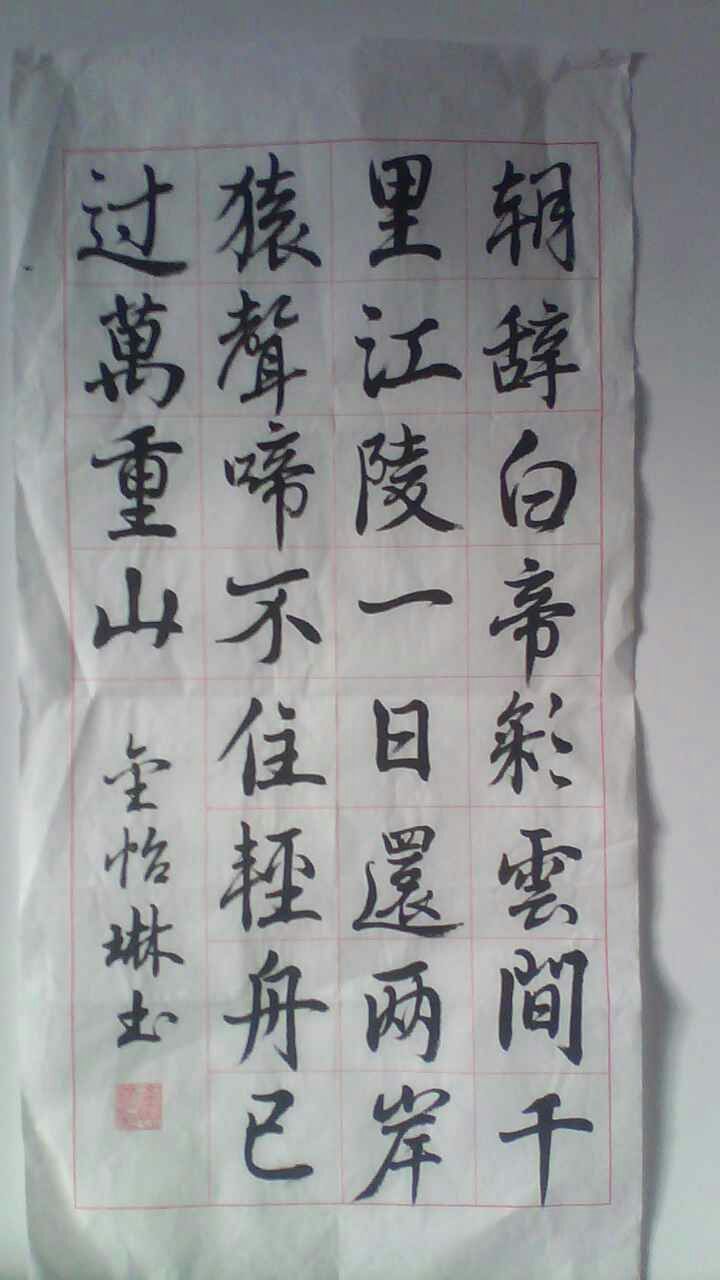 朝辞白帝彩雲間千
里江陵一日還两岸
猿聲啼不住輕舟已
过萬重山
金怡琳书